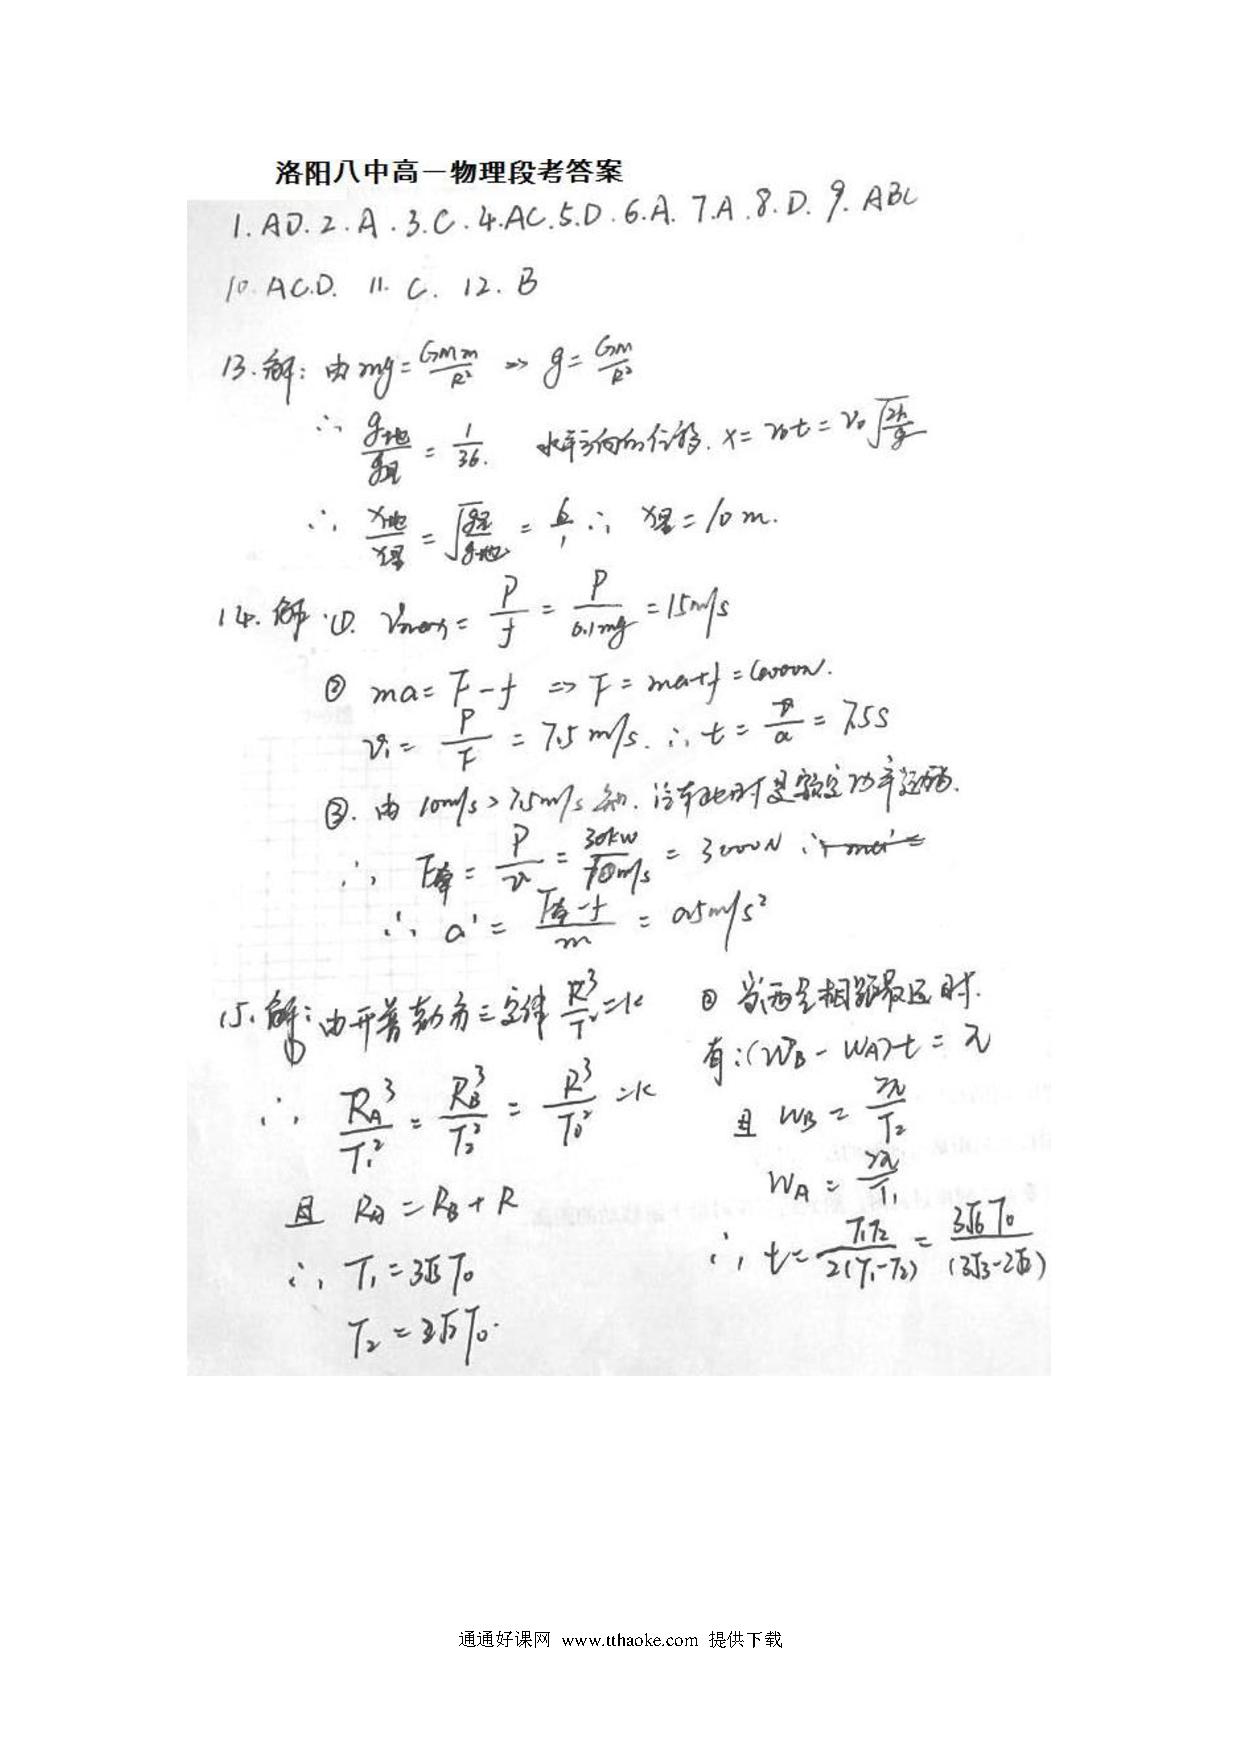 洛阳八中高一物理段考答案
1.AD.2.A.3.C.4.AC.5.D.6.A.7.A.8.D.9.ABC
10.ACD. 11.C. 12.B
13.解：由mg=GMm/R² => g=GM/R²
∴ g地/g星 = 1/36. 水平方向的位移. x=v₀t=v₀√(2h/g)
∴ x地/x星 = √(g星/g地) = 6/1 ∴ x星=10m.
14.解.①. Vmax= P/f = P/0.1mg =15m/s
② ma=F-f => F=ma+f=6000N.
v₁= P/F = 7.5m/s. ∴ t= v/a = 7.5s
③.由10m/s>7.5m/s知.汽车此时是额定功率运动.
∴ F牵= P/v = 30kw/10m/s = 3000N
∴ a'= (F牵-f)/m = 0.5m/s²
15.解：①由开普勒第三定律 R³/T²=k
∴ RA³/T₁² = RB³/T₂² = R³/T₀² =k
且 RA=RB+R
∴ T₁=3√3T₀
T₂=2√2T₀.
② 当两星相距最远时.
有:(WB-WA)t=π
且 WB= 2π/T₂
WA= 2π/T₁
∴ t= T₁T₂/2(T₁-T₂) = 3√6T₀/(3√3-2√2)
通通好课网 www.tthaoke.com 提供下载